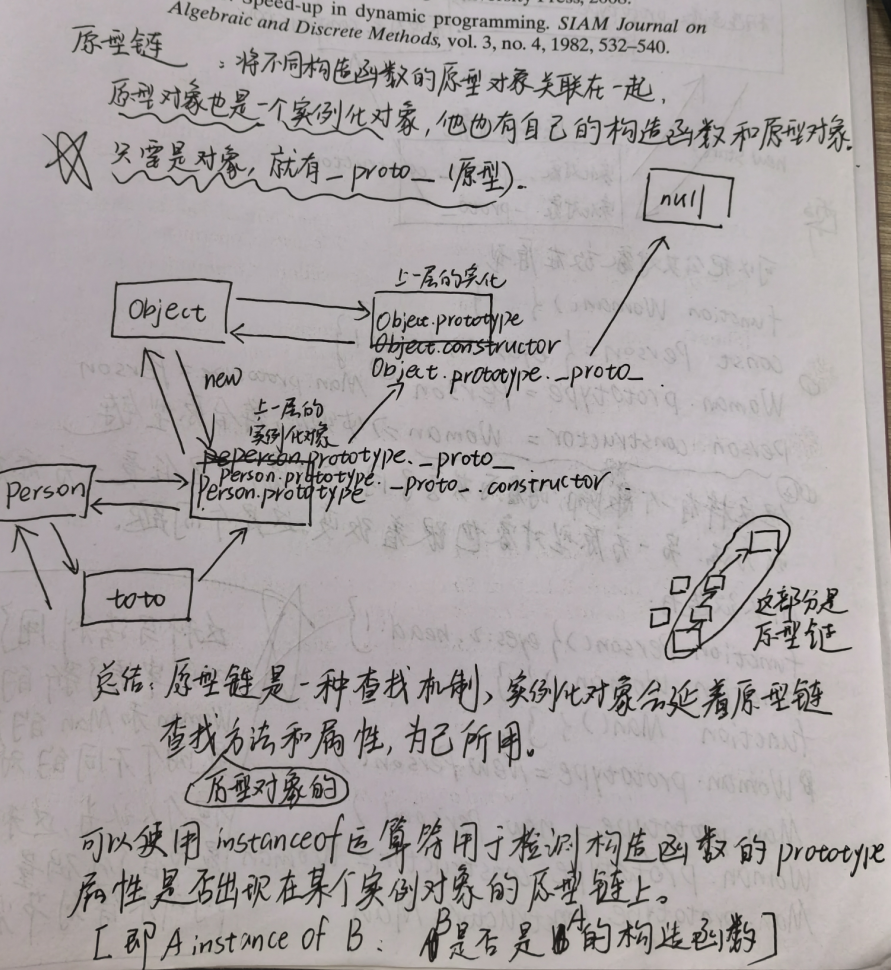 Speed-up in dynamic programming. SIAM Journal on
Algebraic and Discrete Methods, vol. 3, no. 4, 1982, 532–540.
原型链 ：将不同构造函数的原型对象关联在一起，
原型对象也是一个实例化对象，他也有自己的构造函数和原型对象.
只要是对象，就有_proto_(原型)。
null
上一层的实化
Object
Object.prototype
Object.constructor
Object.prototype._proto_.
new
上一层的
实例化对象
person.prototype._proto_
Person.prototype.
Person.prototype._proto_.constructor.
Person
toto
这部分是
原型链
总结：原型链是一种查找机制、实例化对象会延着原型链
查找方法和属性，为己所用。
原型对象的
可以使用instanceof运算符用于检测构造函数的prototype
属性是否出现在某个实例对象的原型链上。
[即A instance of B： B是否是A的构造函数]